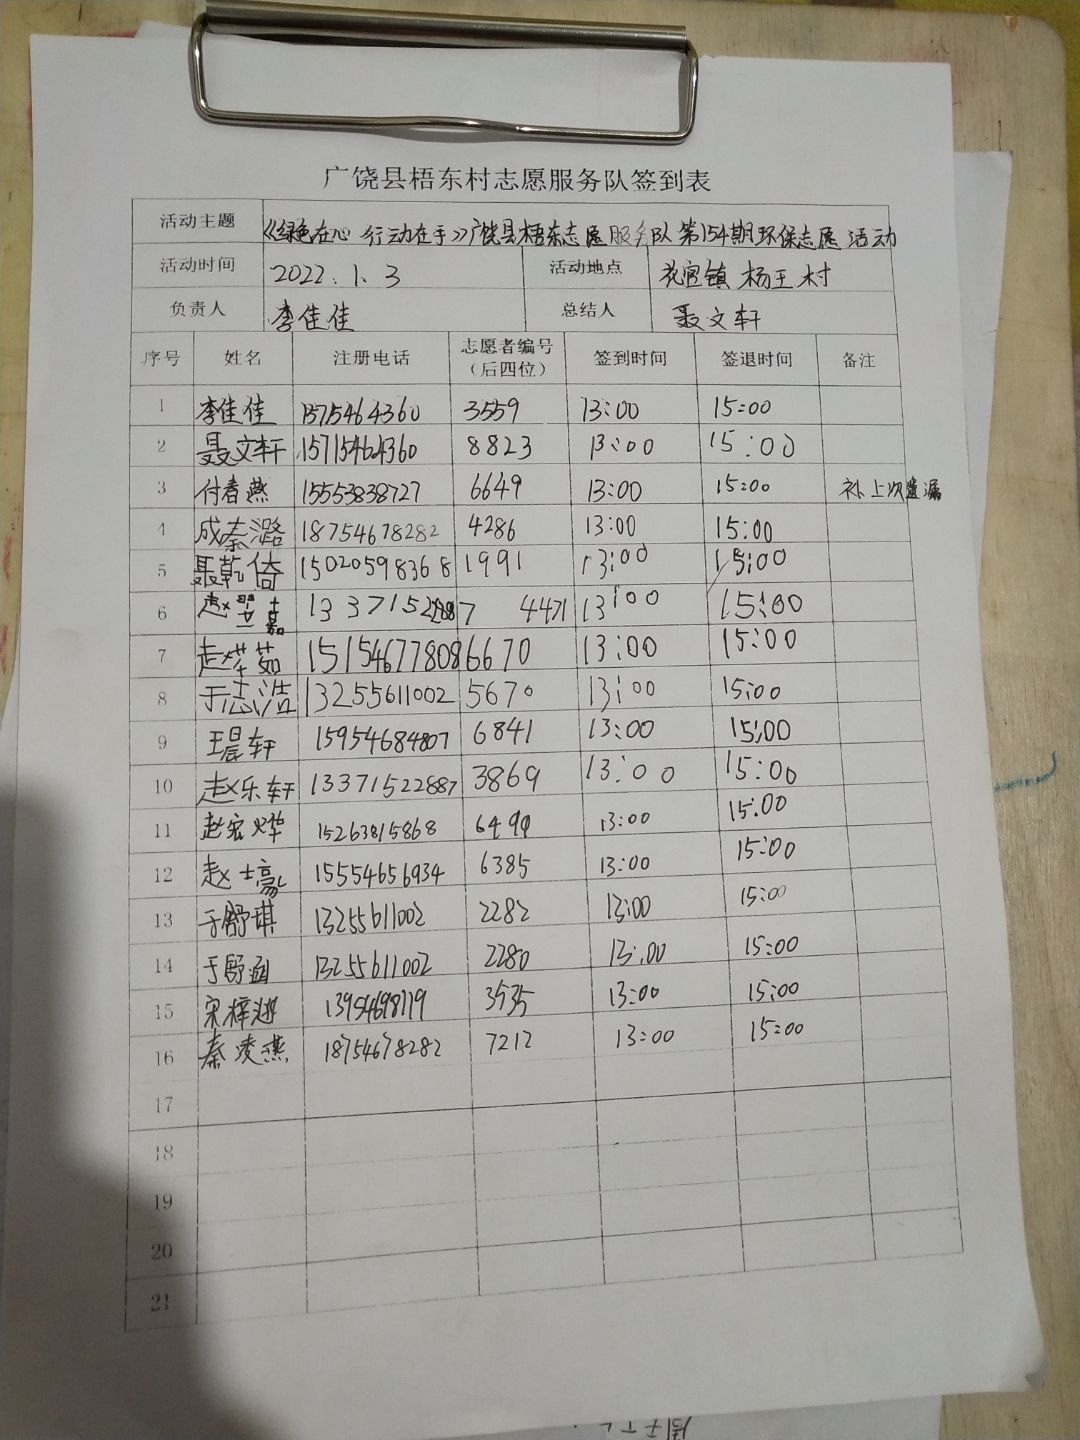 广饶县梧东村志愿服务队签到表
活动主题 《绿色在心 行动在手》广饶县梧东志愿服务队第154期环保志愿活动
活动时间 2022.1.3 活动地点 花官镇杨王村
负责人 李佳佳 总结人 聂文轩
序号 姓名 注册电话 志愿者编号（后四位） 签到时间 签退时间 备注
1 李佳佳 15715464360 3559 13:00 15:00
2 聂文轩 15715464360 8823 13:00 15:00
3 付春燕 15553838727 6649 13:00 15:00 补上次遗漏
4 成秦潞 18754678282 4286 13:00 15:00
5 聂乾倚 15020598368 1991 13:00 15:00
6 赵 嘉 4471 13:00 15:00
7 赵烨茹 15154677808 6670 13:00 15:00
8 于志浩 13255611002 5670 13:00 15:00
9 王晨轩 15954684807 6841 13:00 15:00
10 赵乐轩 13371522887 3869 13:00 15:00
11 赵宏烨 15263815868 13:00 15:00
12 赵士豪 15554656934 6385 13:00 15:00
13 于舒琪 13255611002 2282 13:00 15:00
14 于舒涵 13255611002 2280 13:00 15:00
15 宋梓 13954698119 3535 13:00 15:00
16 秦凌燕 18754678282 7212 13:00 15:00
17
18
19
20
21